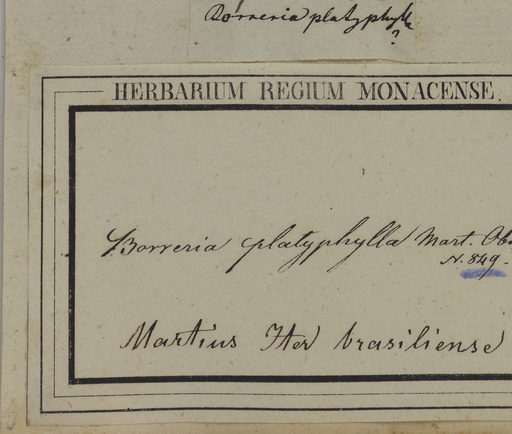 Borreria platyphylla
?
HERBARIUM REGIUM MONACENSE.
Borreria platyphylla Mart. Obs
N. 849.
Martius Iter brasiliense